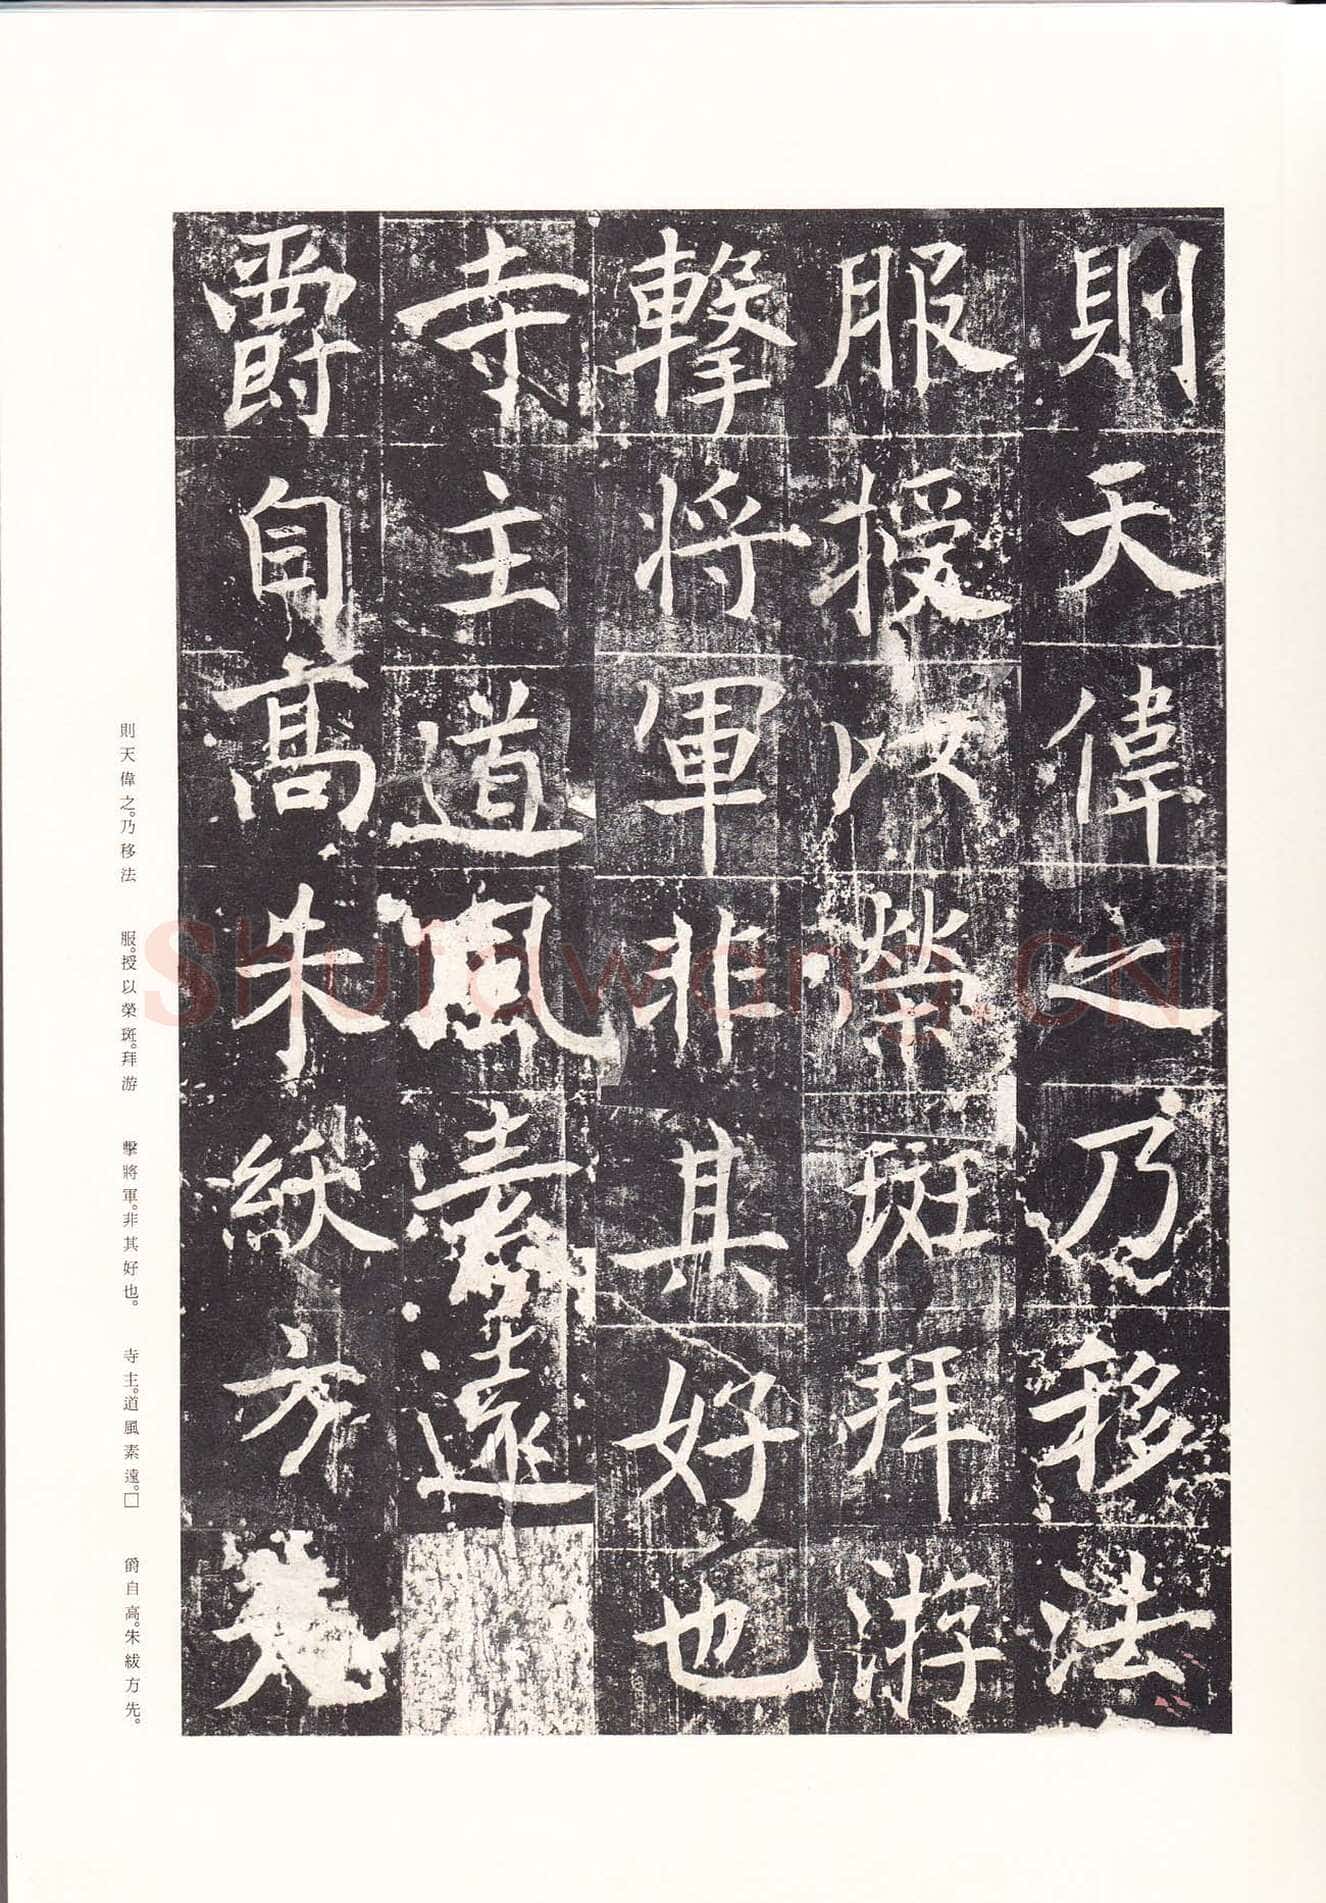 則天偉之乃移法
服授以榮斑拜游
擊將軍非其好也
寺主道風素遠
爵自高朱紱方先
則天偉之。乃移法
服。授以榮斑。拜游
擊將軍。非其好也。
寺主。道風素遠。□
爵自高。朱紱方先。
Shufawang.CN